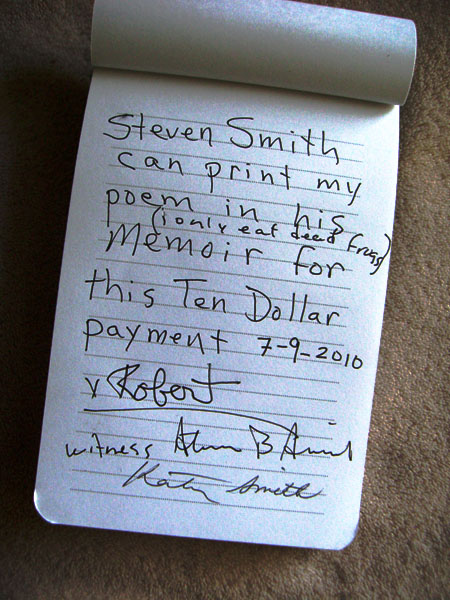 Steven Smith
can print my
poem in his
(i only eat dead frogs)
Memoir for
this Ten Dollar
payment 7-9-2010
Robert
witness B Smith
Smith